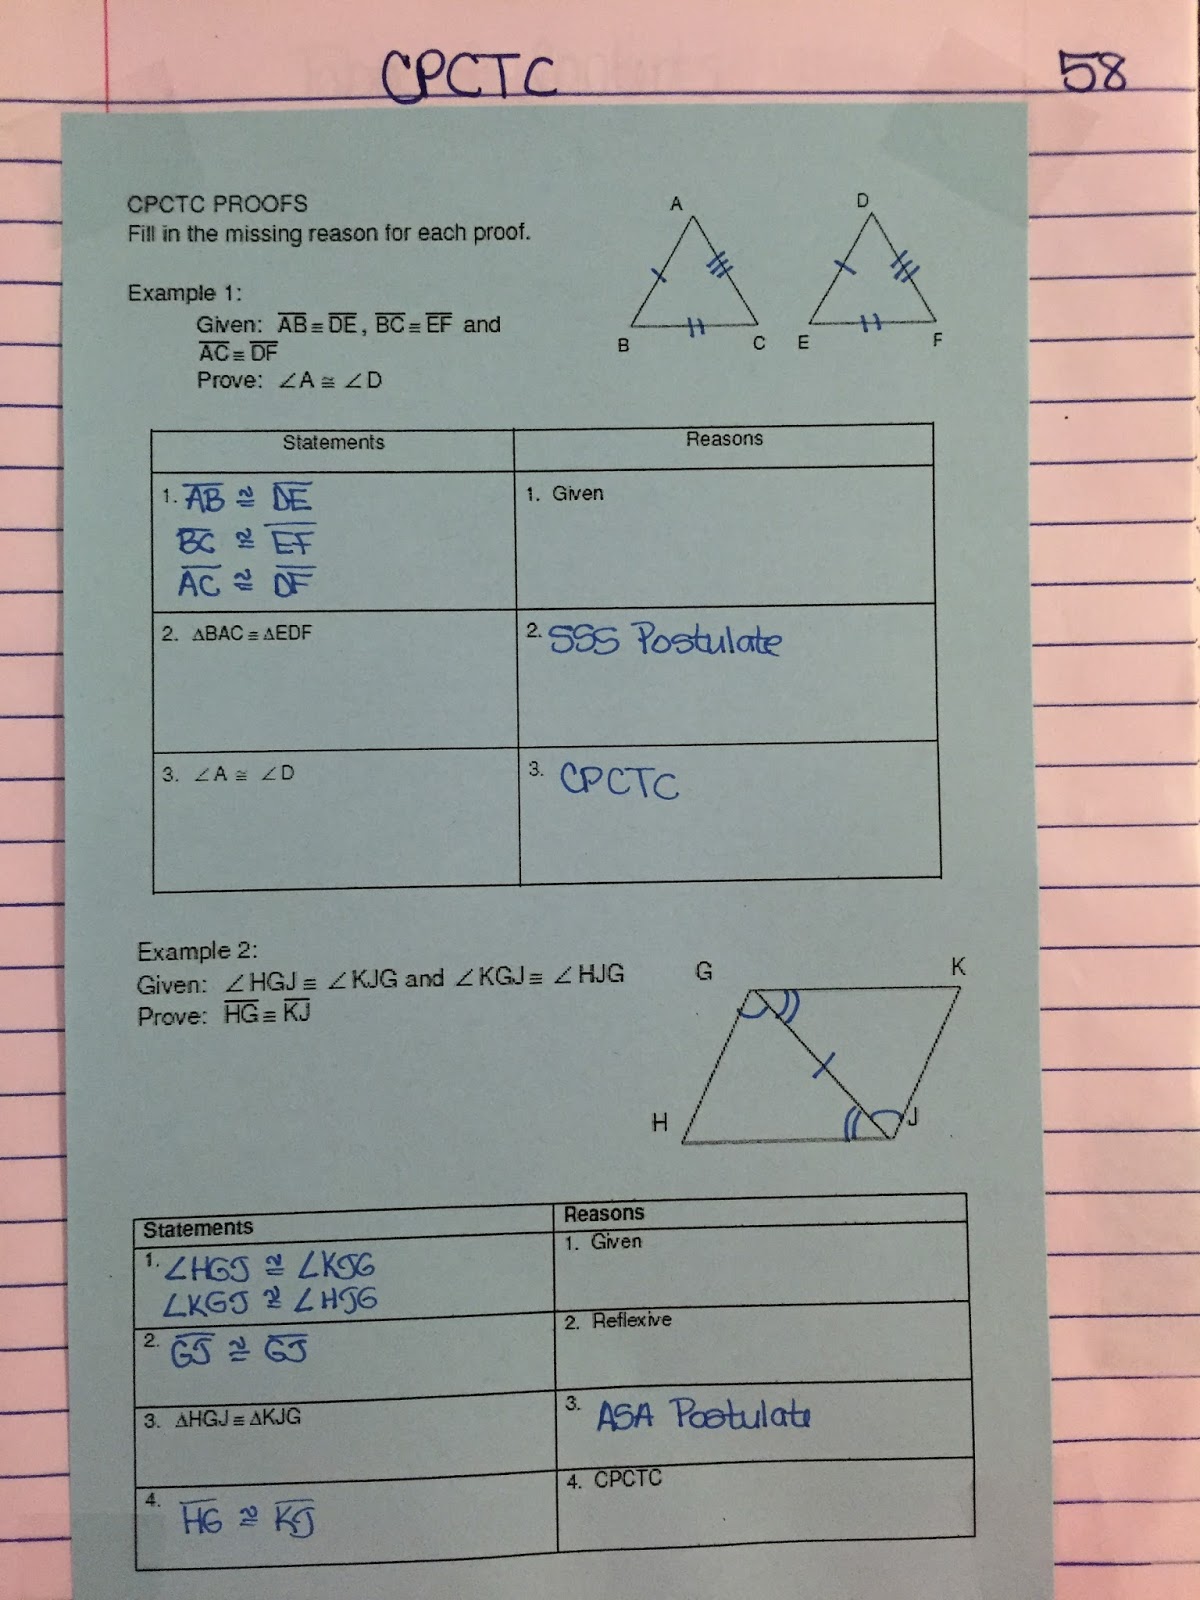 CPCTC
58
CPCTC PROOFS
Fill in the missing reason for each proof.
Example 1:
Given: A̅B̅ ≅ D̅E̅, B̅C̅ ≅ E̅F̅ and
A̅C̅ ≅ D̅F̅
Prove: ∠A ≅ ∠D
A
D
B
C
E
F
Statements
Reasons
1. A̅B̅ ≅ D̅E̅
B̅C̅ ≅ E̅F̅
A̅C̅ ≅ D̅F̅
1. Given
2. ΔBAC ≅ ΔEDF
2. SSS Postulate
3. ∠A ≅ ∠D
3. CPCTC
Example 2:
Given: ∠HGJ ≅ ∠KJG and ∠KGJ ≅ ∠HJG
Prove: H̅G̅ ≅ K̅J̅
G
K
H
J
Statements
Reasons
1. ∠HGJ ≅ ∠KJG
∠KGJ ≅ ∠HJG
1. Given
2. G̅J̅ ≅ G̅J̅
2. Reflexive
3. ΔHGJ ≅ ΔKJG
3. ASA Postulate
4. H̅G̅ ≅ K̅J̅
4. CPCTC